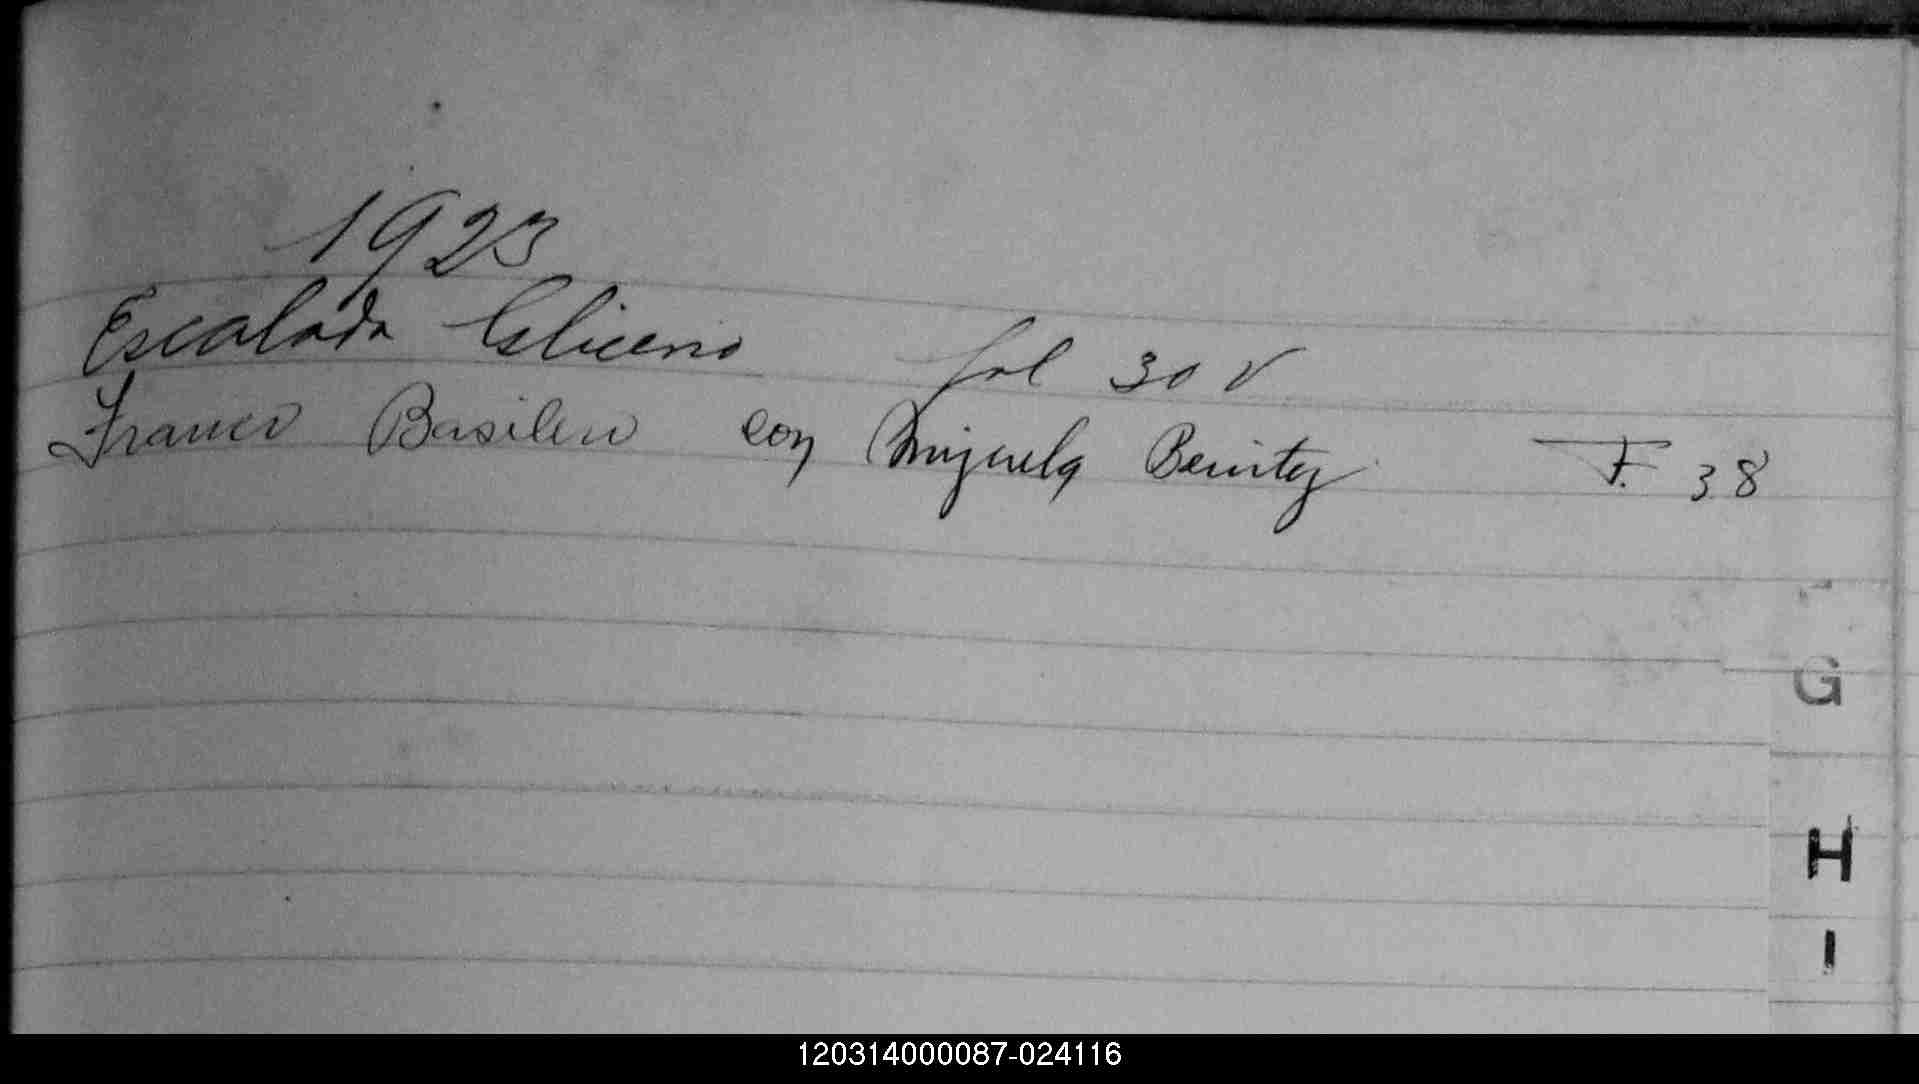 1923
Escalada Glicerio fol 30 v
Franco Basileo con Miguela Benitez F. 38
G
H
I
120314000087-024116